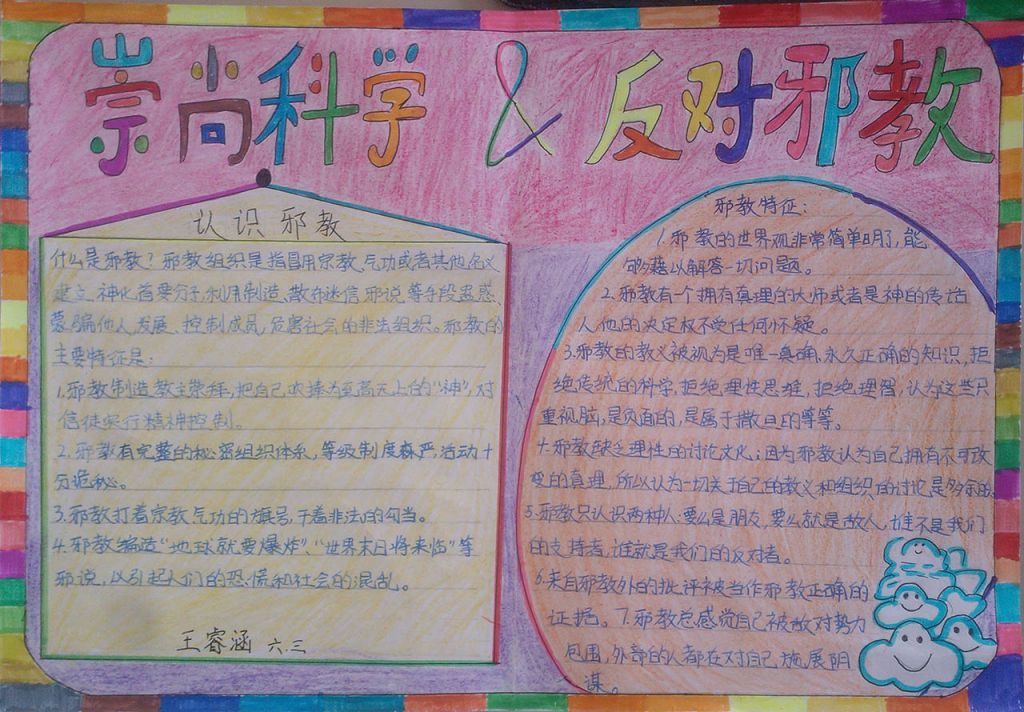 崇尚科学 & 反对邪教
认识邪教
什么是邪教?邪教组织是指冒用宗教、气功或者其他名义
建立、神化首要分子,利用制造、散布迷信邪说等手段蛊惑、
蒙骗他人,发展、控制成员,危害社会的非法组织。邪教的
主要特征是:
1.邪教制造教主崇拜,把自己吹捧为至高无上的“神”,对
信徒实行精神控制。
2.邪教有完整的秘密组织体系,等级制度森严,活动十
分诡秘。
3.邪教打着宗教气功的旗号,干着非法的勾当。
4.邪教编造“地球就要爆炸”、“世界末日将来临”等
邪说,以引起人们的恐慌和社会的混乱。
王睿涵 六.三
邪教特征:
1.邪教的世界观非常简单明了,能
够藉以解答一切问题。
2.邪教有一个拥有真理的大师或者是神的传话
人,他的决定权不受任何怀疑。
3.邪教的教义被视为是唯一真确、永久正确的知识,拒
绝传统的科学,拒绝理性思维,拒绝理智,认为这些只
重视脑,是负面的,是属于撒旦的等等。
4.邪教缺乏理性的讨论文化;因为邪教认为自己拥有不可改
变的真理,所以认为一切关于自己的教义和组织的讨论是多余的。
5.邪教只认识两种人:要么是朋友,要么就是敌人,谁不是我们
的支持者,谁就是我们的反对者。
6.来自邪教外的批评被当作邪教正确的
证据。7.邪教总感觉自己被敌对势力
包围,外部的人都在对自己施展阴
谋。